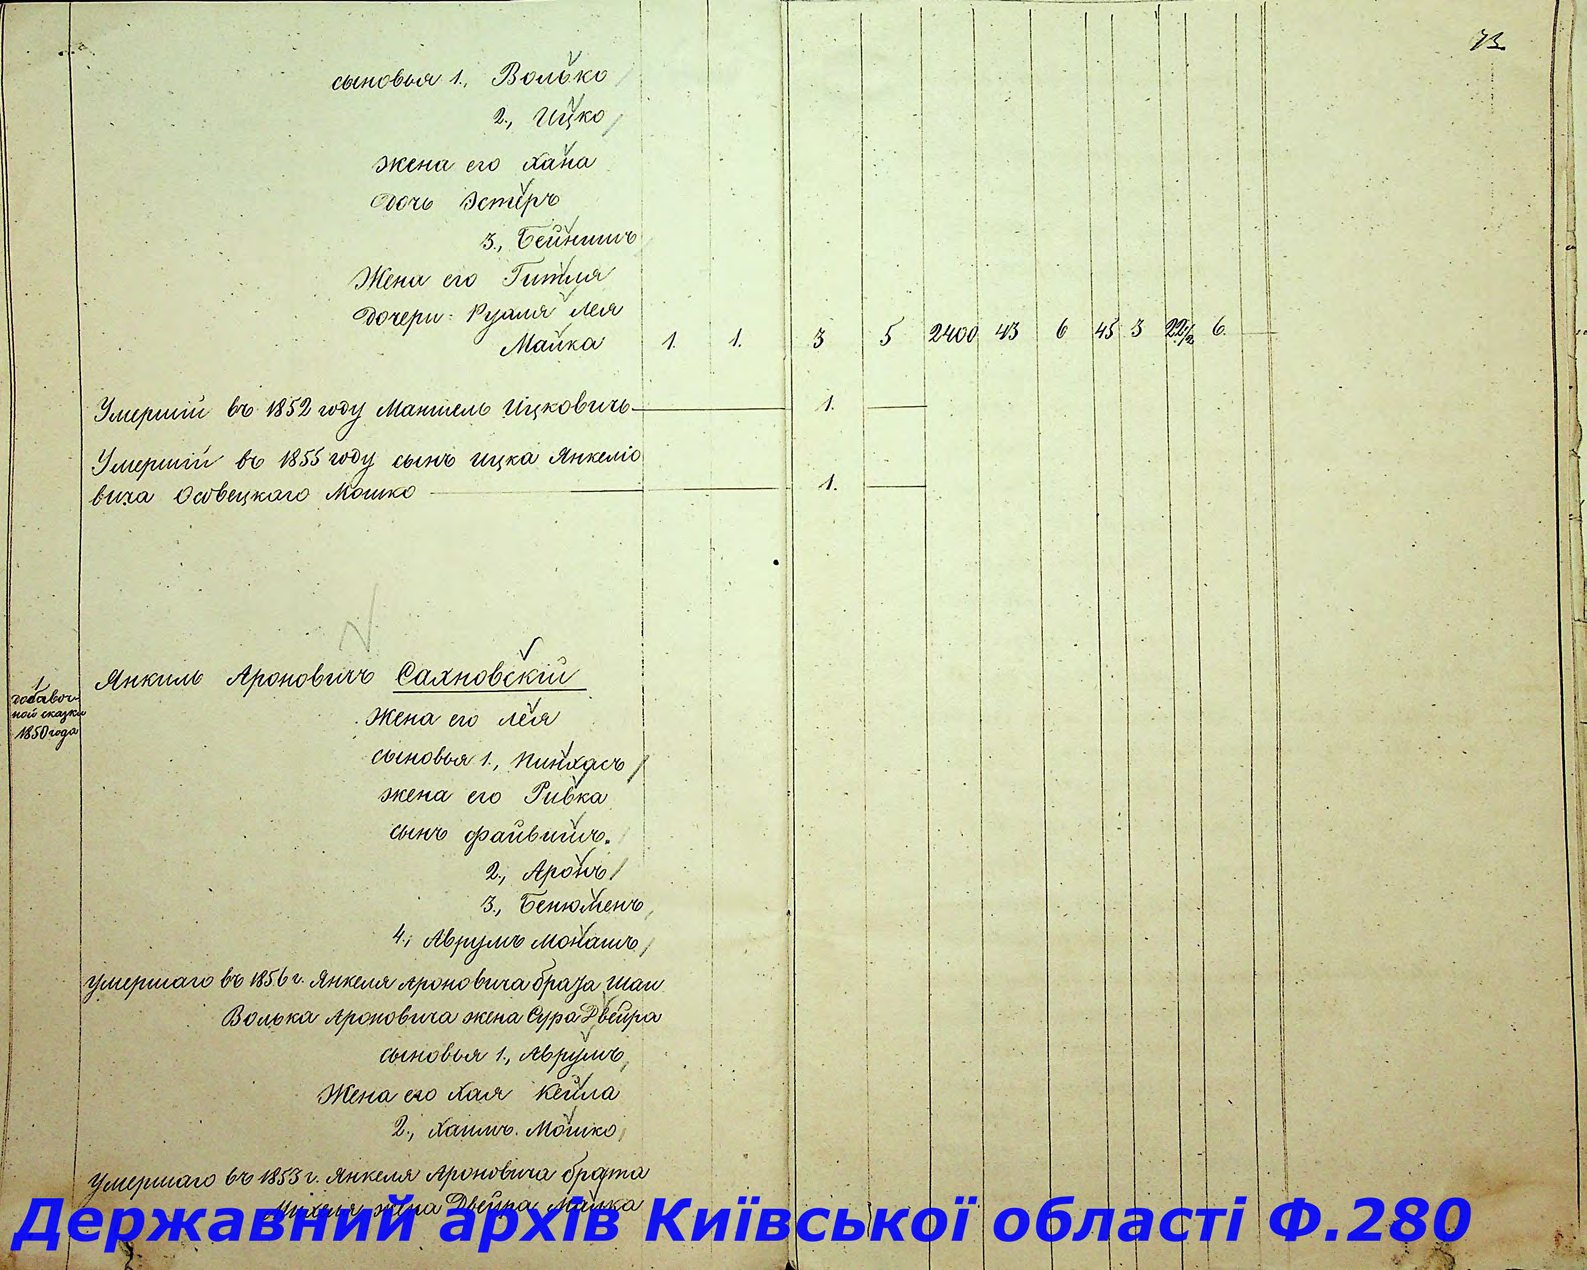 73
сыновья 1., Волько
2., Ицко
жена его Хана
дочь Эстеръ
3., Бейнишъ
Жена его Гитля
дочери: Рухля Лея
Малка 1. 1. 3 5 2400 43 6 45 3 22 1/2 6.
Умершій въ 1852 году Маншель Ицковичъ 1.
Умершій въ 1855 году сынъ Ицка Янкеліо
вича Осовецкаго Мошко 1.
Янкиль Ароновичъ Сахновскій
1
добавоч-
ной сказки
1850 года
жена его Лея
сыновья 1., Пинхасъ
жена его Ривка
сынъ Файвишъ.
2., Аронъ
3., Бенюменъ
4., Аврумъ Монашъ
умершаго въ 1856 г. Янкеля Ароновича брата Шаи
Волька Ароновича жена Сура Двейра
сыновья 1., Аврумъ
Жена его Хая Кейла
2., Хаимъ. Мошко
умершаго въ 1853 г. Янкеля Ароновича брата
жена Двейра Малка
Державний архів Київської області Ф.280